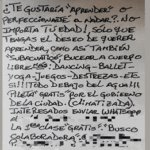 ¿TE GUSTARÍA "APRENDER" O
PERFECCIONARTE A NADAR? NO
IMPORTA TU EDAD! SÓLO QUE
TENGAS EL DESEO DE QUERER
APRENDER, COMO ASI TAMBIÉN
BUCEAR A CUERPO
LIBRE DANCING - BALLET -
YOGA - JUEGOS - DESTREZAS - ETC
TODO DEBAJO DEL AGUA!!!
GRATIS POR EL GOBIERNO
DE LA CIUDAD. (CLIMATIZADA)
INTERESADOS ENVIAR WHATSAPP
LA 1RA CLASE "GRATIS" BUSCO
COLABORADORA